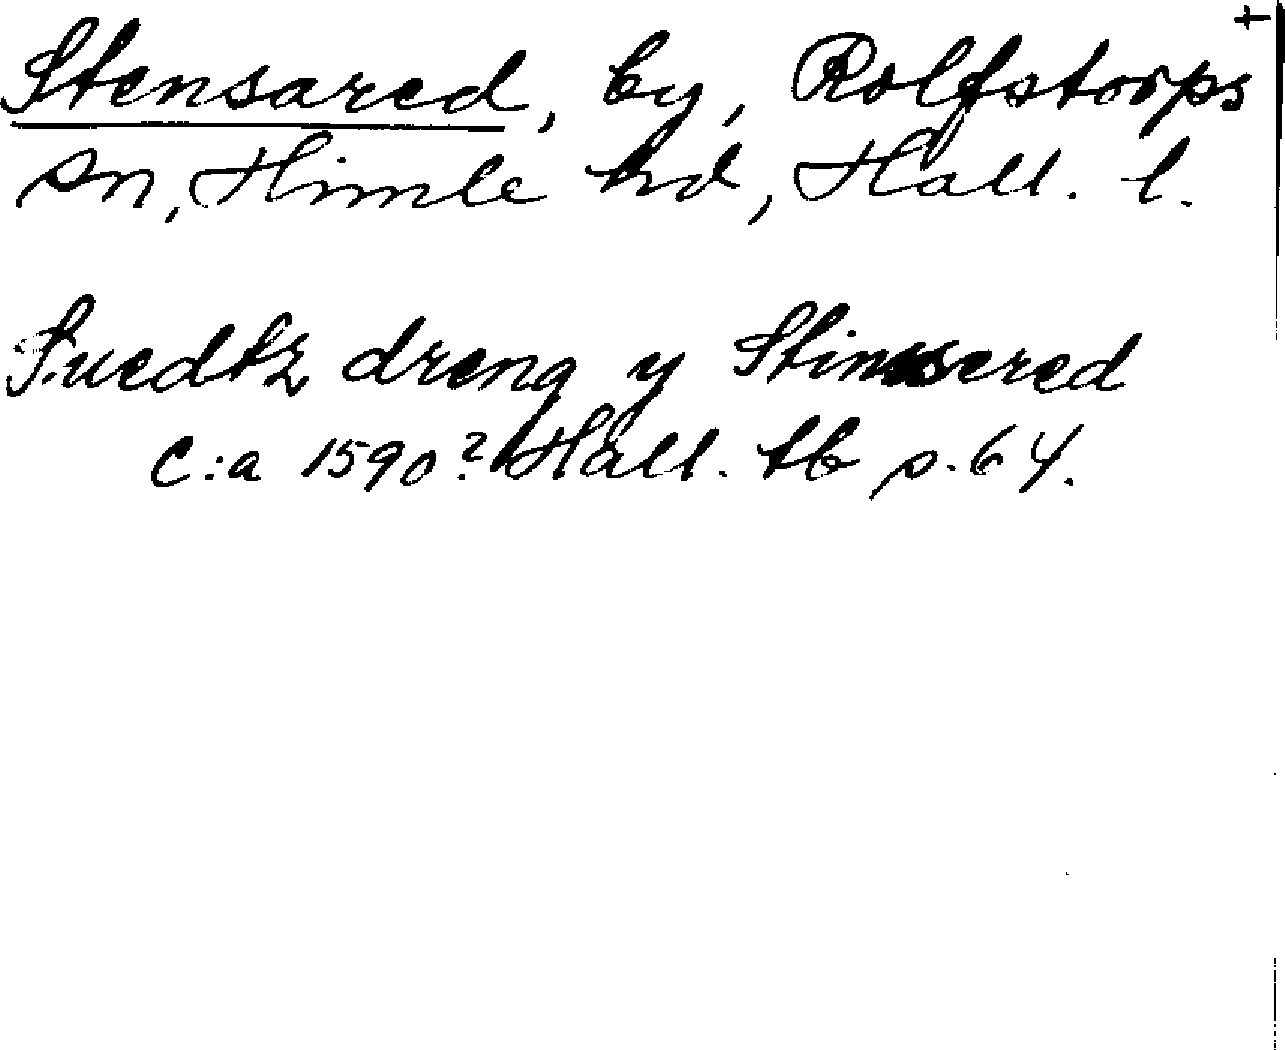 Stensared, by, Rolfstorps +
sn, Himle hd, Hall. l.
Suedtz dreng y Stinssered
c:a 1590? Hall. tb s. 64.